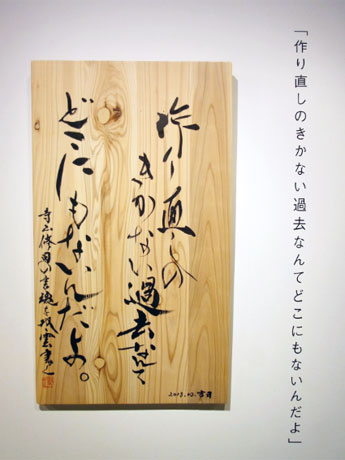 「作り直しのきかない過去なんてどこにもないんだよ」
作り直しの
きかない過去なんて
どこにもないんだよ。
寺山修司の言魂を